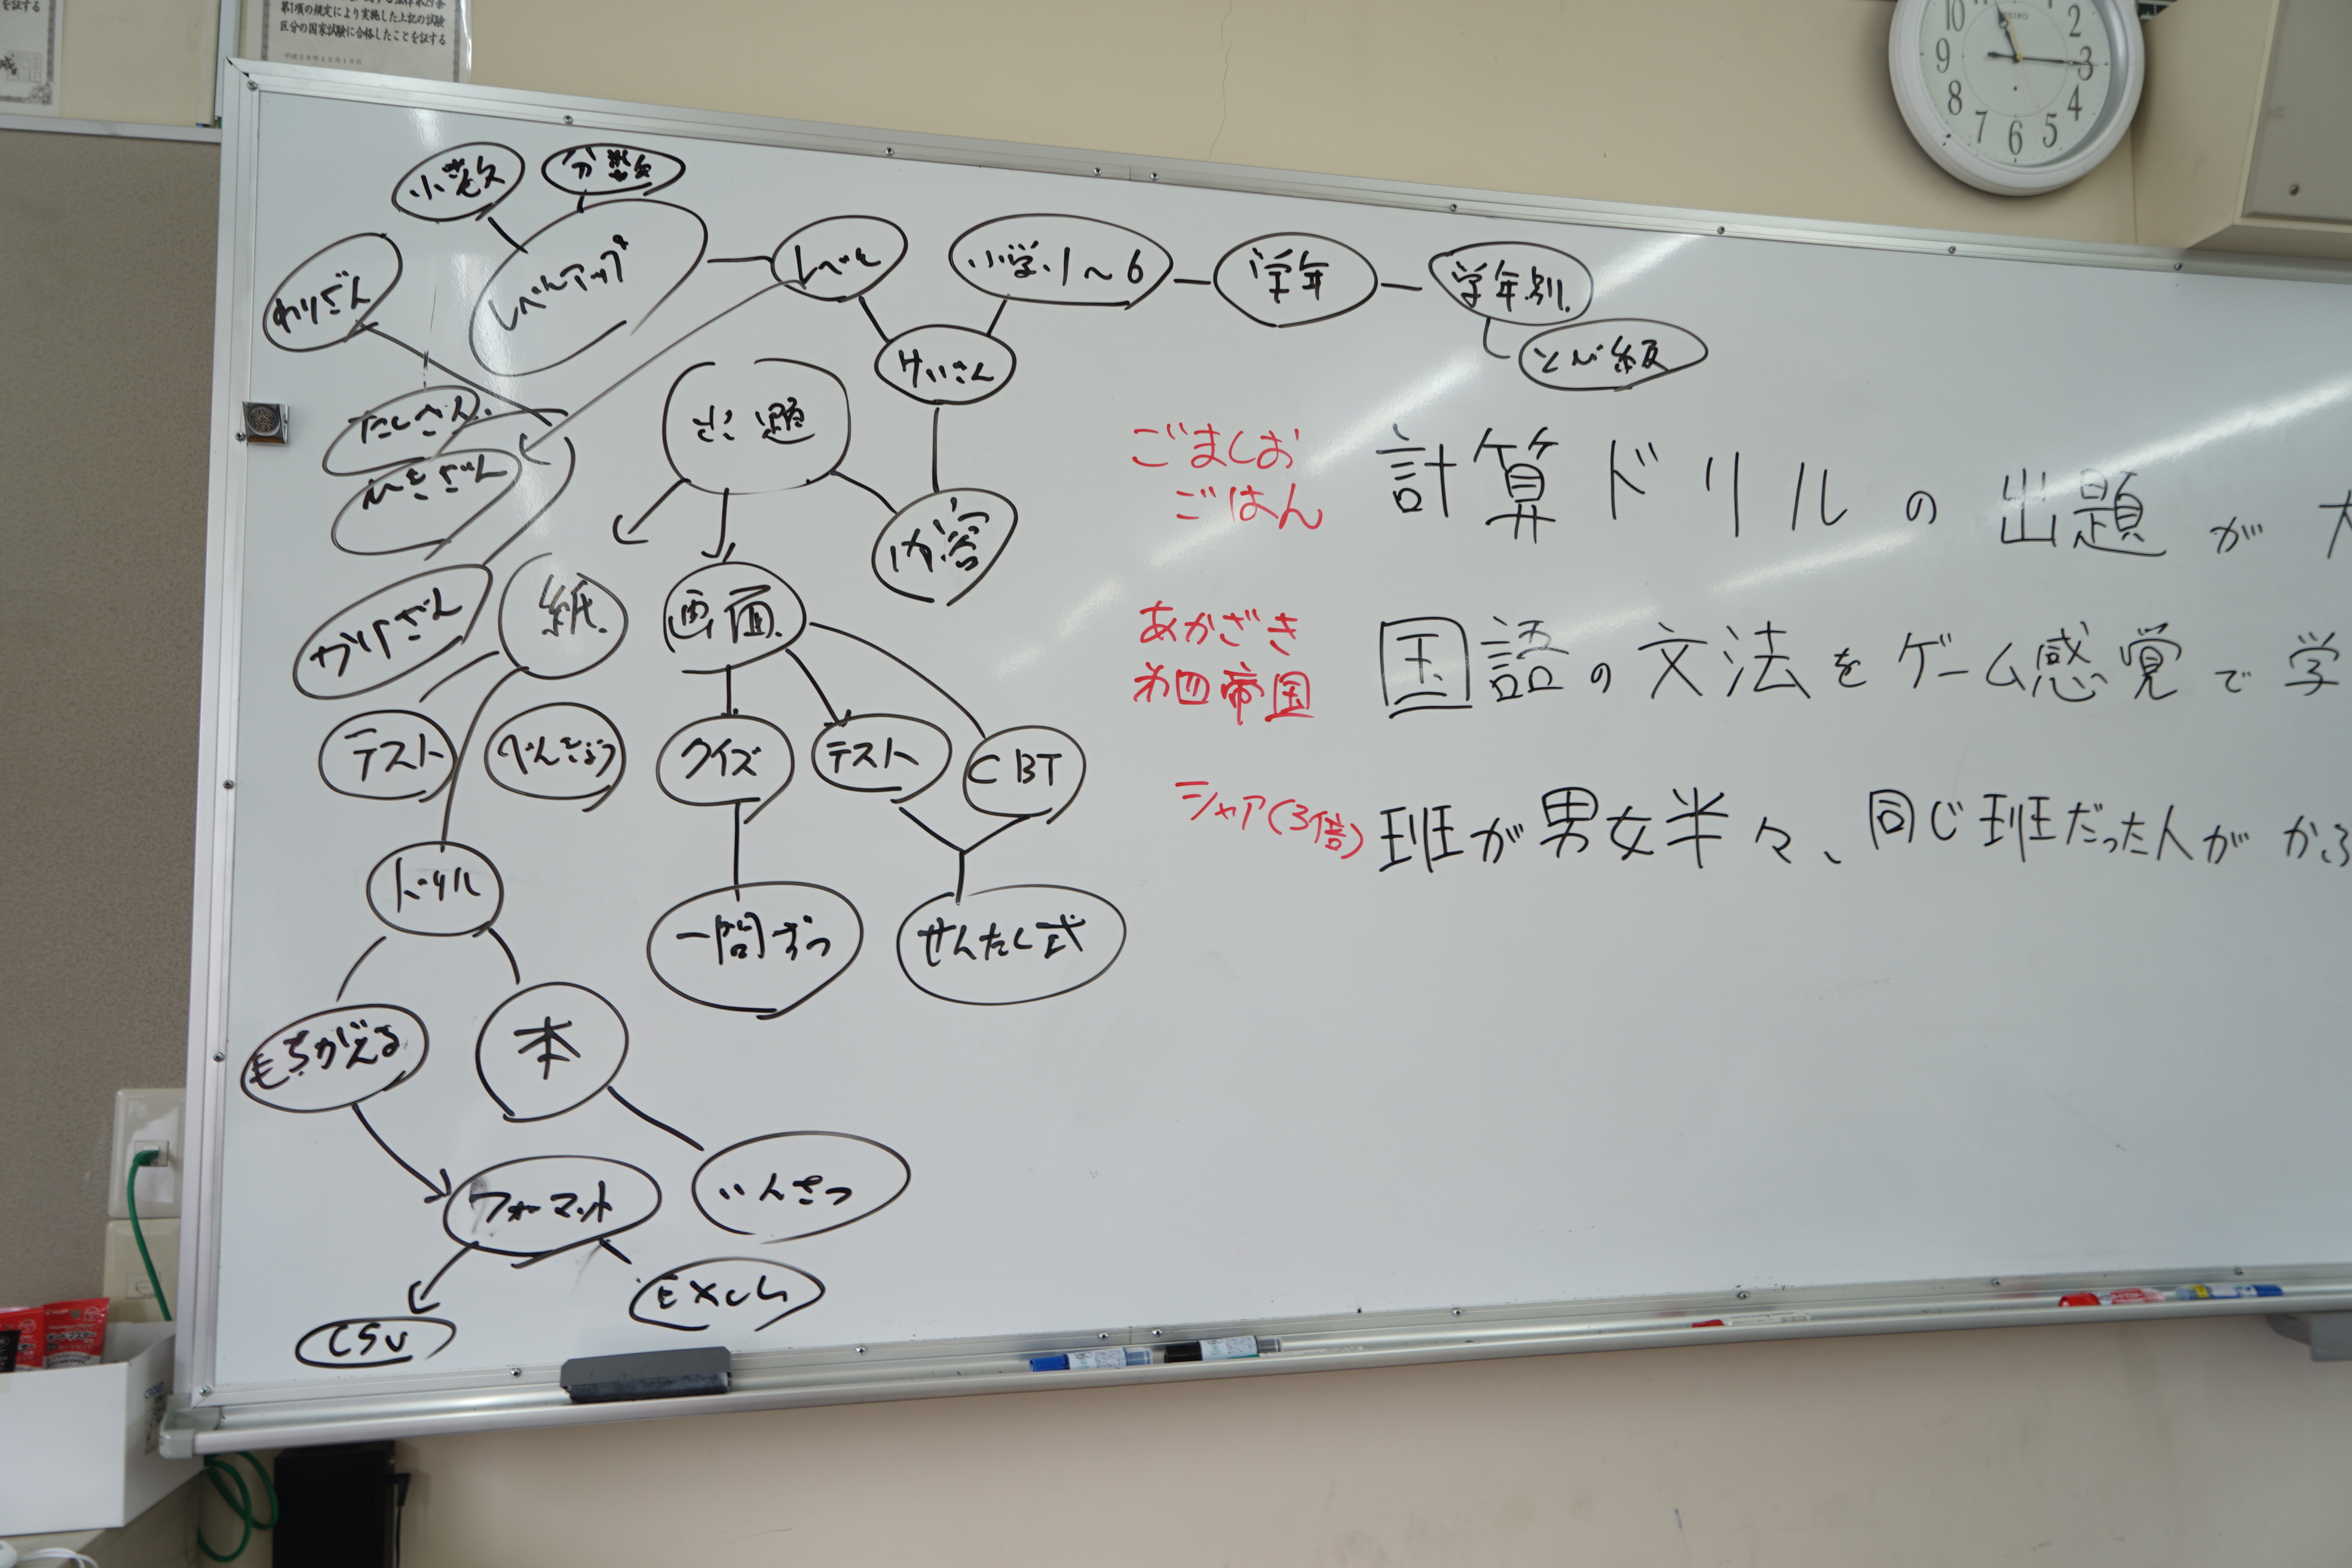 第1項の規定により実施した上記の試験
区分の国家試験に合格したことを証する
平成28年12月16日
SEIKO
10 2
9 3
8 4
7 6 5
小数
分数
わりざん
レベルアップ
レベル
小学1～6
学年
学年別
とび級
けいさん
たしざん
ひきざん
出題
内容
かけざん
紙
画面
テスト
べんきょう
クイズ
テスト
CBT
ドリル
一問ずつ
せんたく式
もちかえる
本
フォーマット
いんさつ
CSV
Excel
ごましお
ごはん
計算ドリルの出題が
あかざき
第四帝国
国語の文法をゲーム感覚で学
シャア(3倍)
班が男女半々、同じ班だった人がかぶ